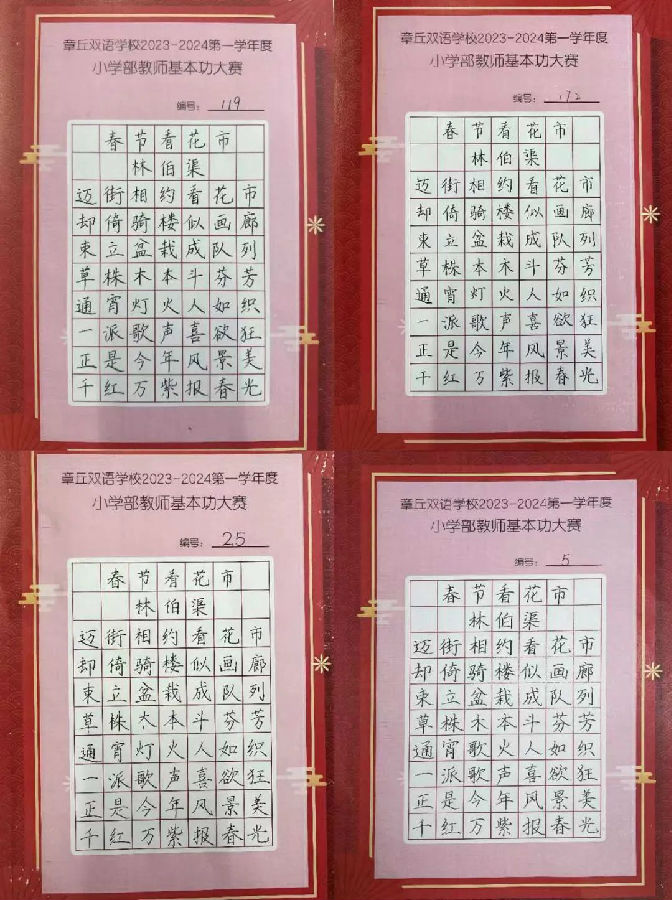 章丘双语学校2023-2024第一学年度
小学部教师基本功大赛
编号: 119
春节看花市
林伯渠
迈街相约看花市
却倚骑楼似画廊
束立盆栽成队列
草株木本斗芬芳
通宵灯火人如织
一派歌声喜欲狂
正是今年风景美
千红万紫报春光
章丘双语学校2023-2024第一学年度
小学部教师基本功大赛
编号: 172
春节看花市
林伯渠
迈街相约看花市
却倚骑楼似画廊
束立盆栽成队列
草株本木斗芬芳
通宵灯火人如织
一派歌声喜欲狂
正是今年风景美
千红万紫报春光
章丘双语学校2023-2024第一学年度
小学部教师基本功大赛
编号: 25
春节看花市
林伯渠
迈街相约看花市
却倚骑楼似画廊
束立盆栽成队列
草株木本斗芬芳
通宵灯火人如织
一派歌声喜欲狂
正是今年风景美
千红万紫报春光
章丘双语学校2023-2024第一学年度
小学部教师基本功大赛
编号: 5
春节看花市
林伯渠
迈街相约看花市
却倚骑楼似画廊
束立盆栽成队列
草株木本斗芬芳
通宵歌火人如织
一派歌声喜欲狂
正是今年风景美
千红万紫报春光